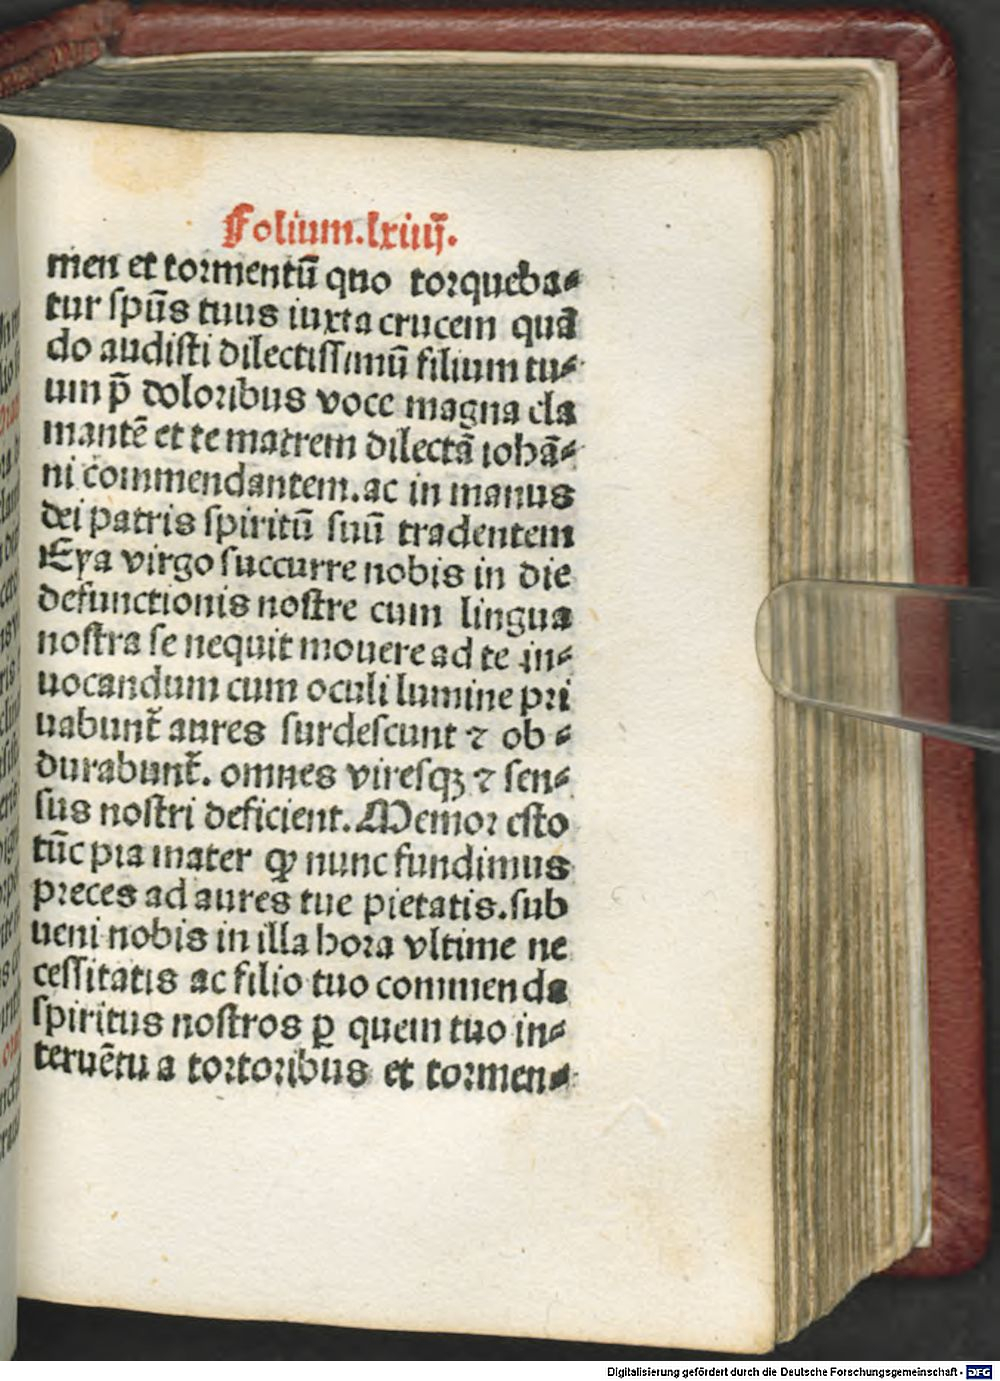 Folium.lxiiij.
men et tormentū quo torqueba⸗
tur spūs tuus iuxta crucem quā
do audisti dilectissimū filium tu⸗
um p̄ doloribus voce magna cla
mantē et te matrem dilectā iohā⸗
ni commendantem.ac in manus
dei patris spiritū suū tradentem
Eya virgo succurre nobis in die
defunctionis nostre cum lingua
nostra se nequit mouere ad te in⸗
uocandum cum oculi lumine pri
uabunt̄ aures surdescunt ⁊ ob⸗
durabunt̄. omnes viresqꝫ ⁊ sen⸗
sus nostri deficient. Memor esto
tūc pia mater ꝙ nunc fundimus
preces ad aures tue pietatis.sub
ueni nobis in illa hora vltime ne
cessitatis ac filio tuo commenda
spiritus nostros ꝑ quem tuo in⸗
teruētu a tortoribus et tormen⸗
Digitalisierung gefördert durch die Deutsche Forschungsgemeinschaft - DFG